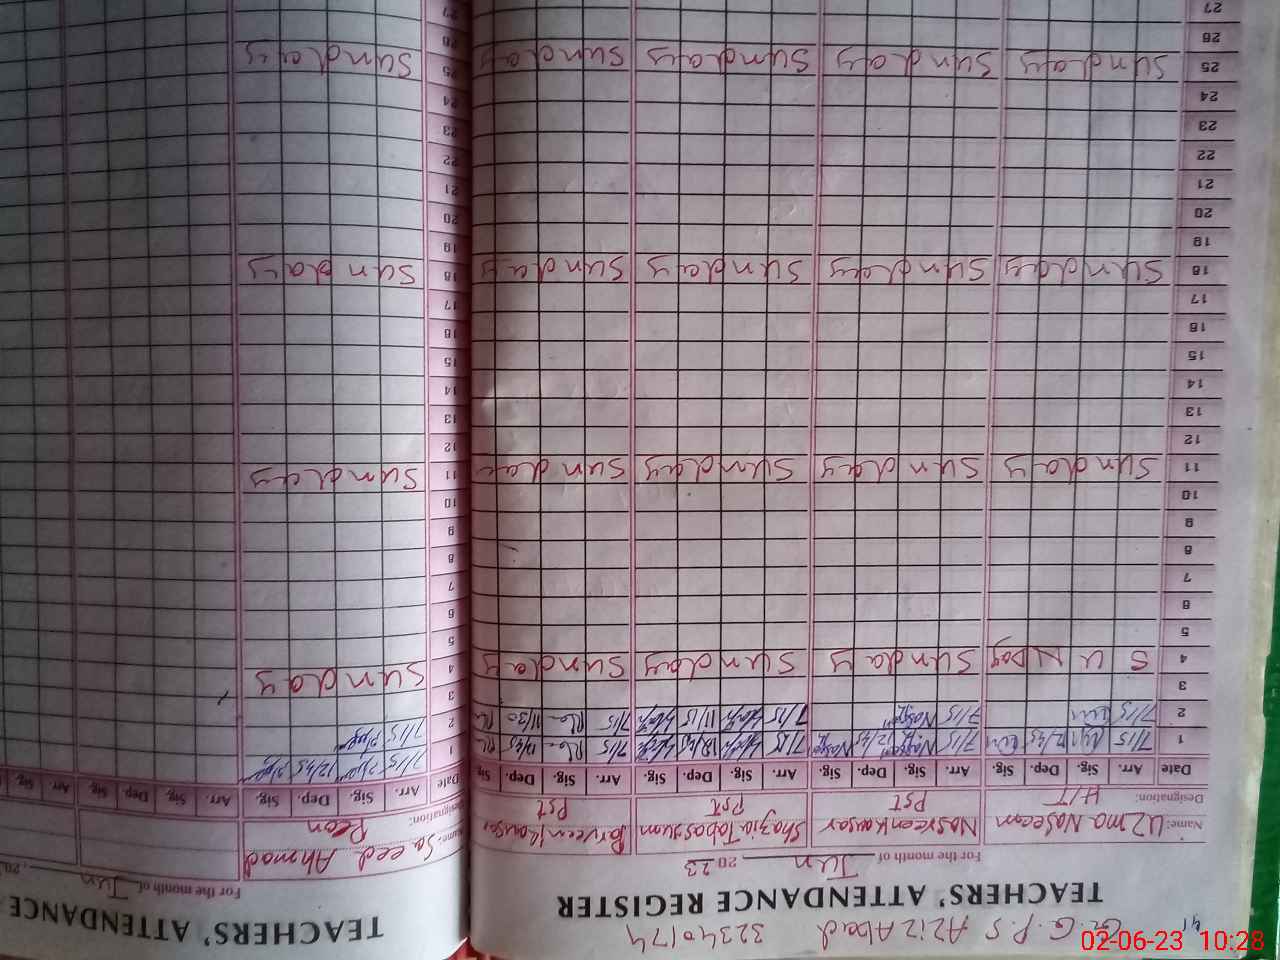 G. G. P. S Aziz Abad 32340174
TEACHERS' ATTENDANCE REGISTER
For the month of Jun 2023
Name: Uzma Naseem Nasreen Kausar Shazia Tabassum Parveen Kausar
Designation: H/T Pst Pst Pst
Date Arr. Sig. Dep. Sig. Arr. Sig. Dep. Sig. Arr. Sig. Dep. Sig. Arr. Sig. Dep. Sig.
1 7/15 12/45 7/15 12/45 7/15 12/45 7/15 12/45
2 7/15 7/15 7/15 11/15 7/15 11/30
3
4 Sunday Sunday Sunday Sunday
5
6
7
8
9
10
11 Sunday Sunday Sunday Sunday
12
13
14
15
16
17
18 Sunday Sunday Sunday Sunday
19
20
21
22
23
24
25 Sunday Sunday Sunday Sunday
26
27
TEACHERS' ATTENDANCE
For the month of Jun , 20
Name: Saeed Ahmad
Designation: Peon
Date Arr. Sig. Dep. Sig. Arr. Sig. Dep. Sig. Arr. Sig.
1 7/15 12/45
2 7/15
3
4 Sunday
5
6
7
8
9
10
11 Sunday
12
13
14
15
16
17
18 Sunday
19
20
21
22
23
24
25 Sunday
26
27
02-06-23 10:28